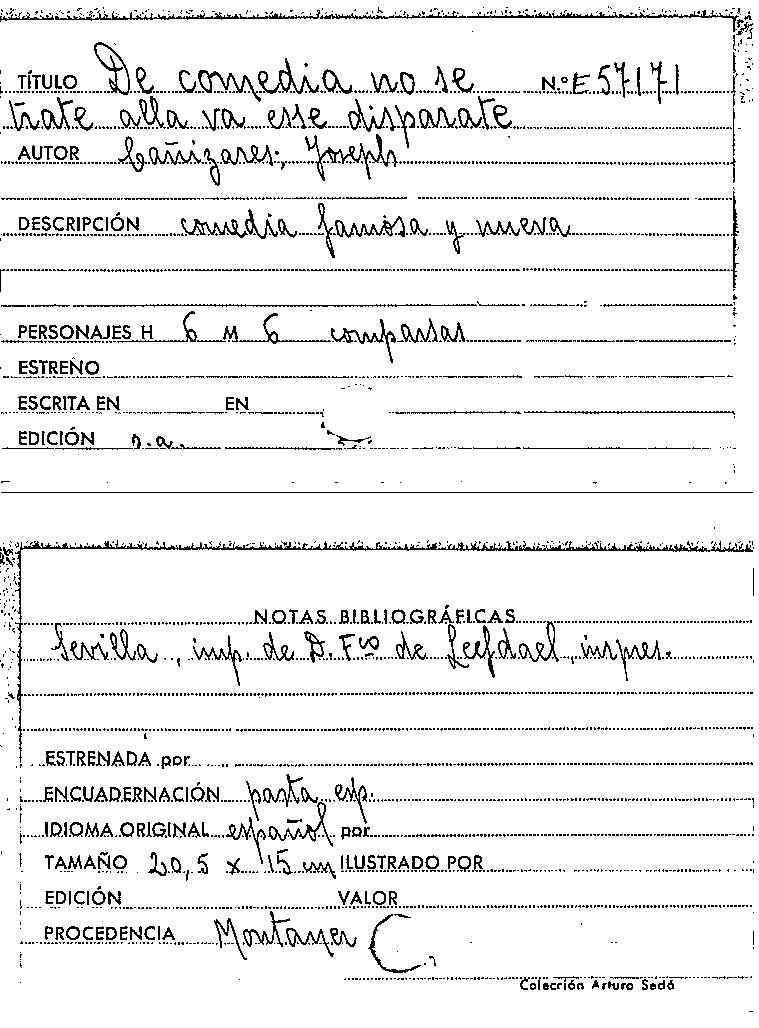 TÍTULO De comedia no se N.º E 57171
trate alla va esse disparate
AUTOR Cañizares, Joseph
DESCRIPCIÓN comedia famosa y nueva
PERSONAJES H 6 M 6 comparsas
ESTRENO
ESCRITA EN EN
EDICIÓN s.a.
NOTAS BIBLIOGRÁFICAS
Sevilla, imp. de D. Fco de Leefdael, impres.
ESTRENADA por
ENCUADERNACIÓN pasta esp.
IDIOMA ORIGINAL español por
TAMAÑO 20,5 x 15 cm ILUSTRADO POR
EDICIÓN VALOR
PROCEDENCIA Montaner C.
Colección Arturo Sedó